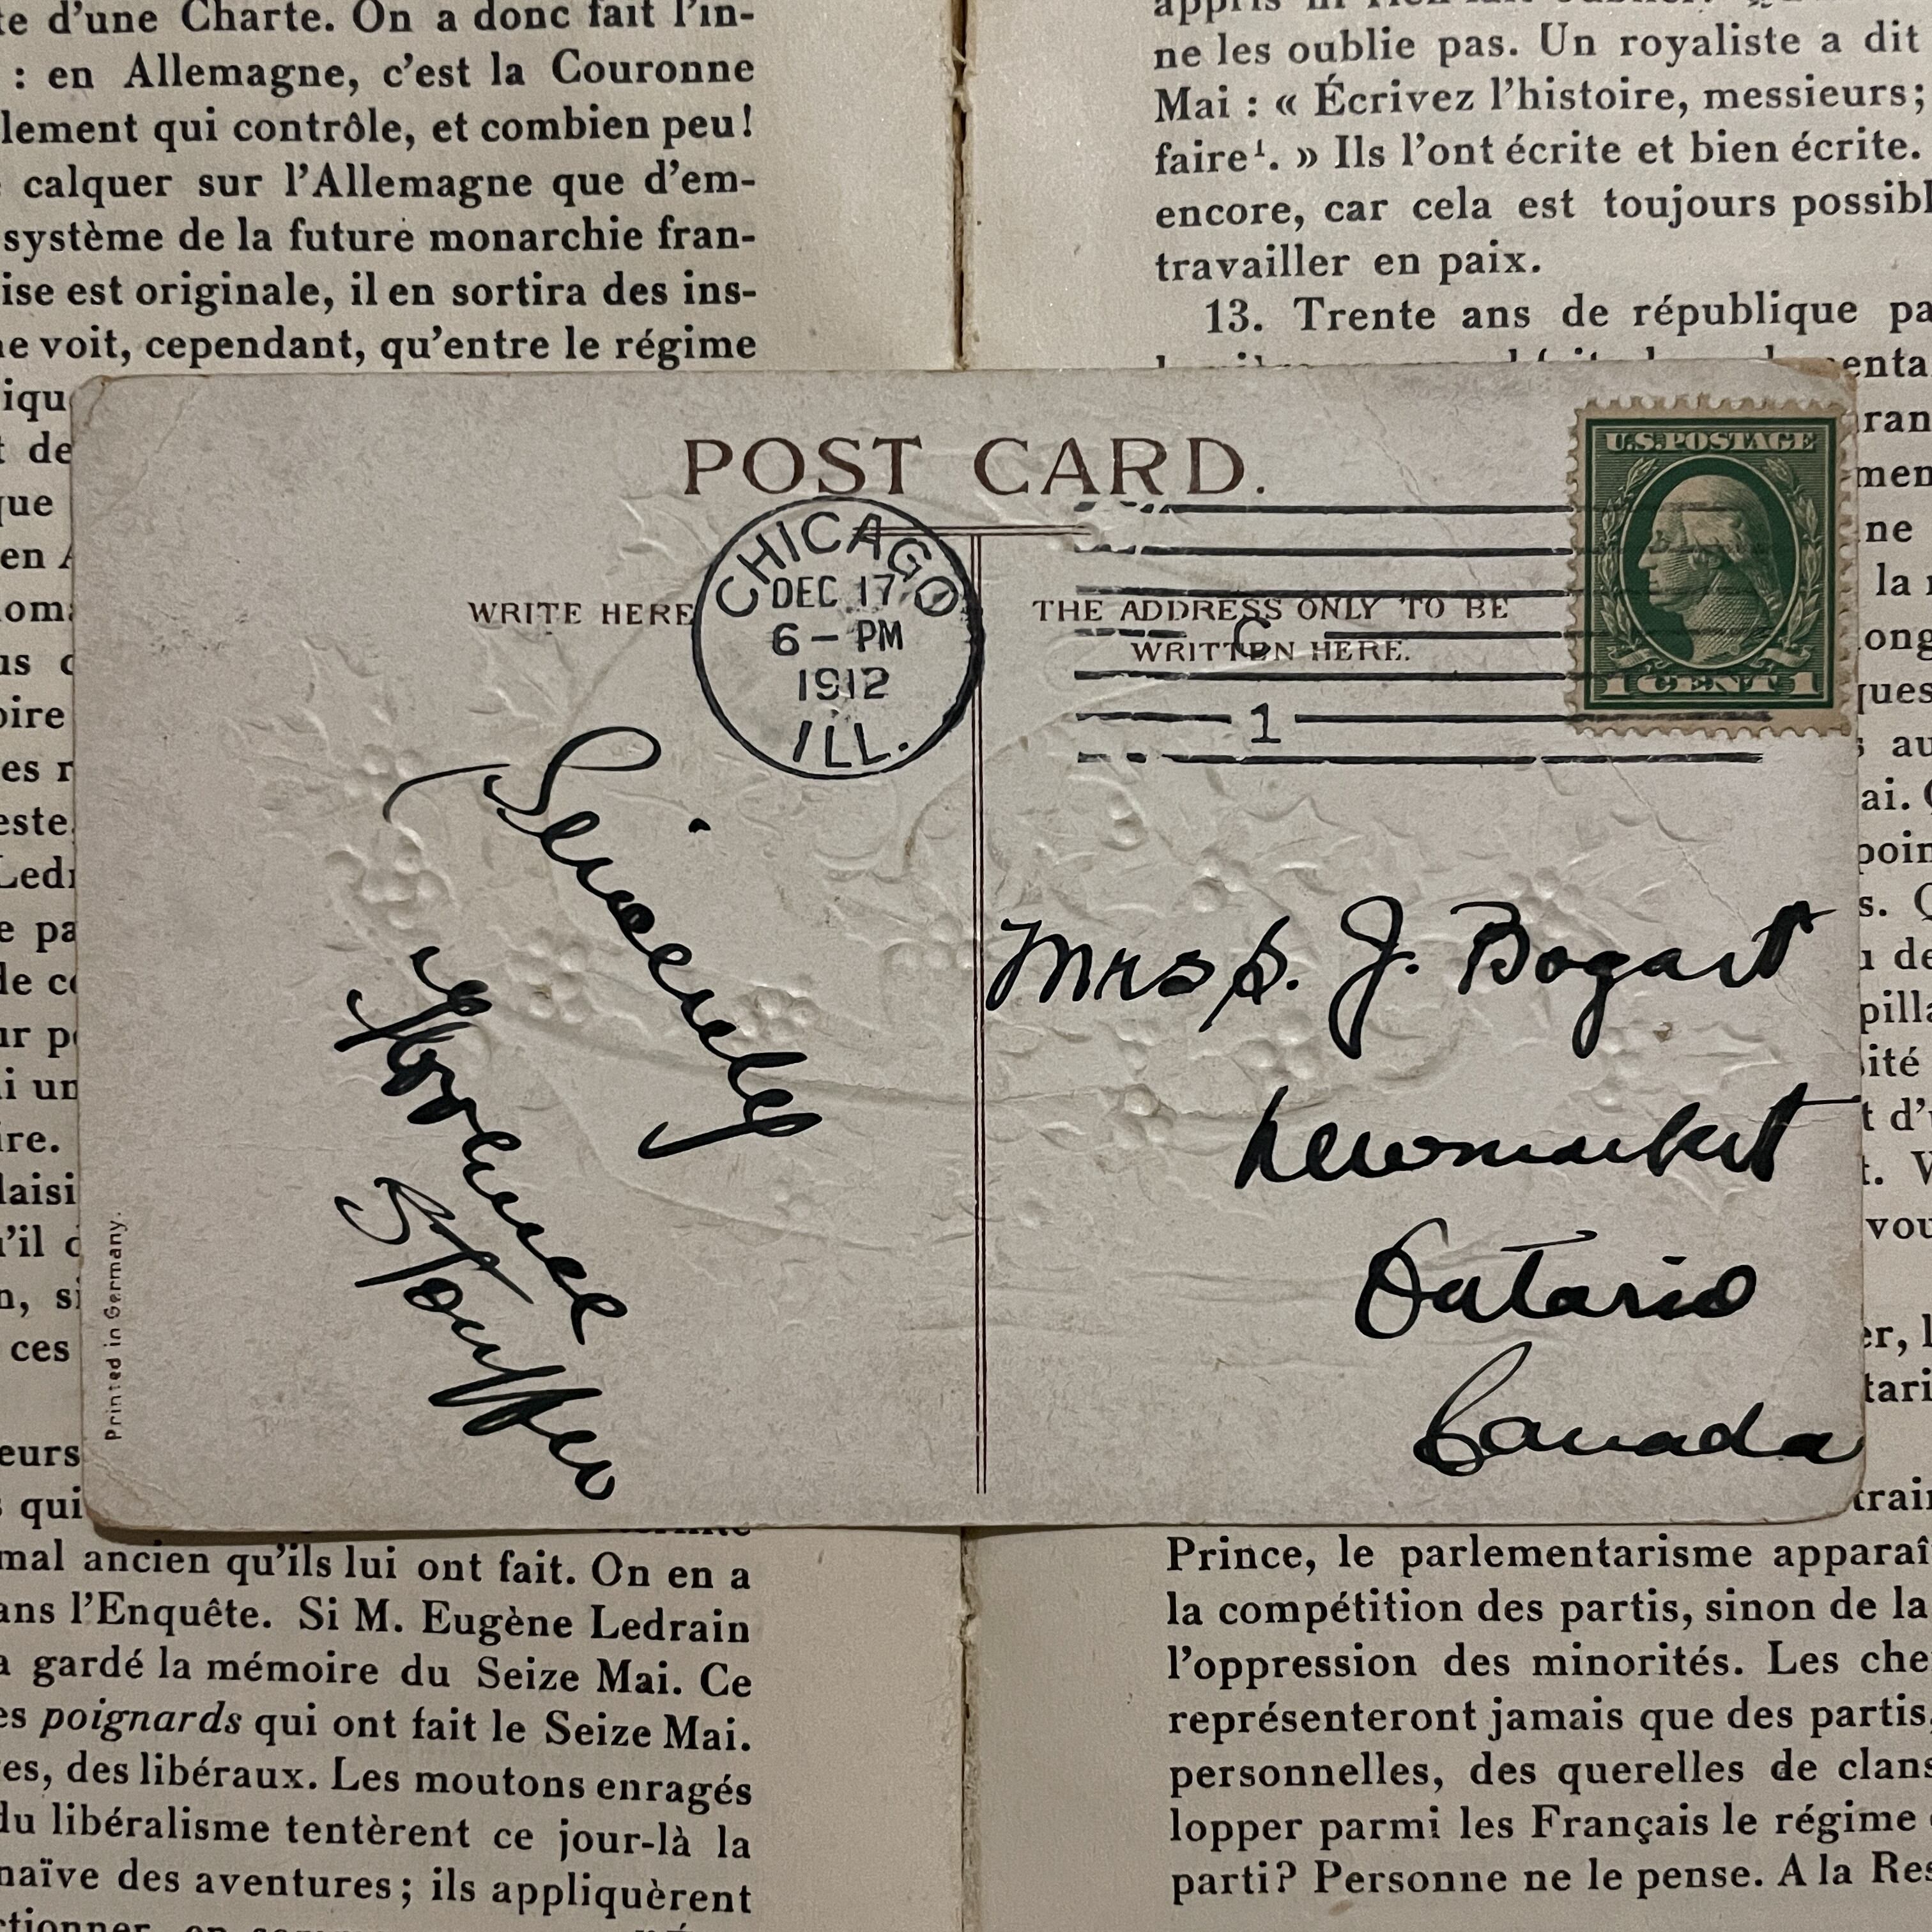 te d'une Charte. On a donc fait l'in-
: en Allemagne, c'est la Couronne
lement qui contrôle, et combien peu!
calquer sur l'Allemagne que d'em-
système de la future monarchie fran-
ise est originale, il en sortira des ins-
ne voit, cependant, qu'entre le régime
ne les oublie pas. Un royaliste a dit
Mai : « Écrivez l'histoire, messieurs;
faire¹. » Ils l'ont écrite et bien écrite.
encore, car cela est toujours possibl
travailler en paix.
13. Trente ans de république pa
POST CARD.
U.S. POSTAGE
1 CENT 1
CHICAGO
DEC 17
6 – PM
1912
ILL.
C
1
WRITE HERE
THE ADDRESS ONLY TO BE
WRITTEN HERE.
Sincerely
Florence
Stouffer
Mrs S. J. Bogart
Newmarket
Ontario
Canada
Printed in Germany.
mal ancien qu'ils lui ont fait. On en a
ans l'Enquête. Si M. Eugène Ledrain
a gardé la mémoire du Seize Mai. Ce
es poignards qui ont fait le Seize Mai.
es, des libéraux. Les moutons enragés
du libéralisme tentèrent ce jour-là la
naïve des aventures; ils appliquèrent
Prince, le parlementarisme apparaî
la compétition des partis, sinon de la
l'oppression des minorités. Les che
représenteront jamais que des partis
personnelles, des querelles de clans
lopper parmi les Français le régime
parti? Personne ne le pense. A la Res